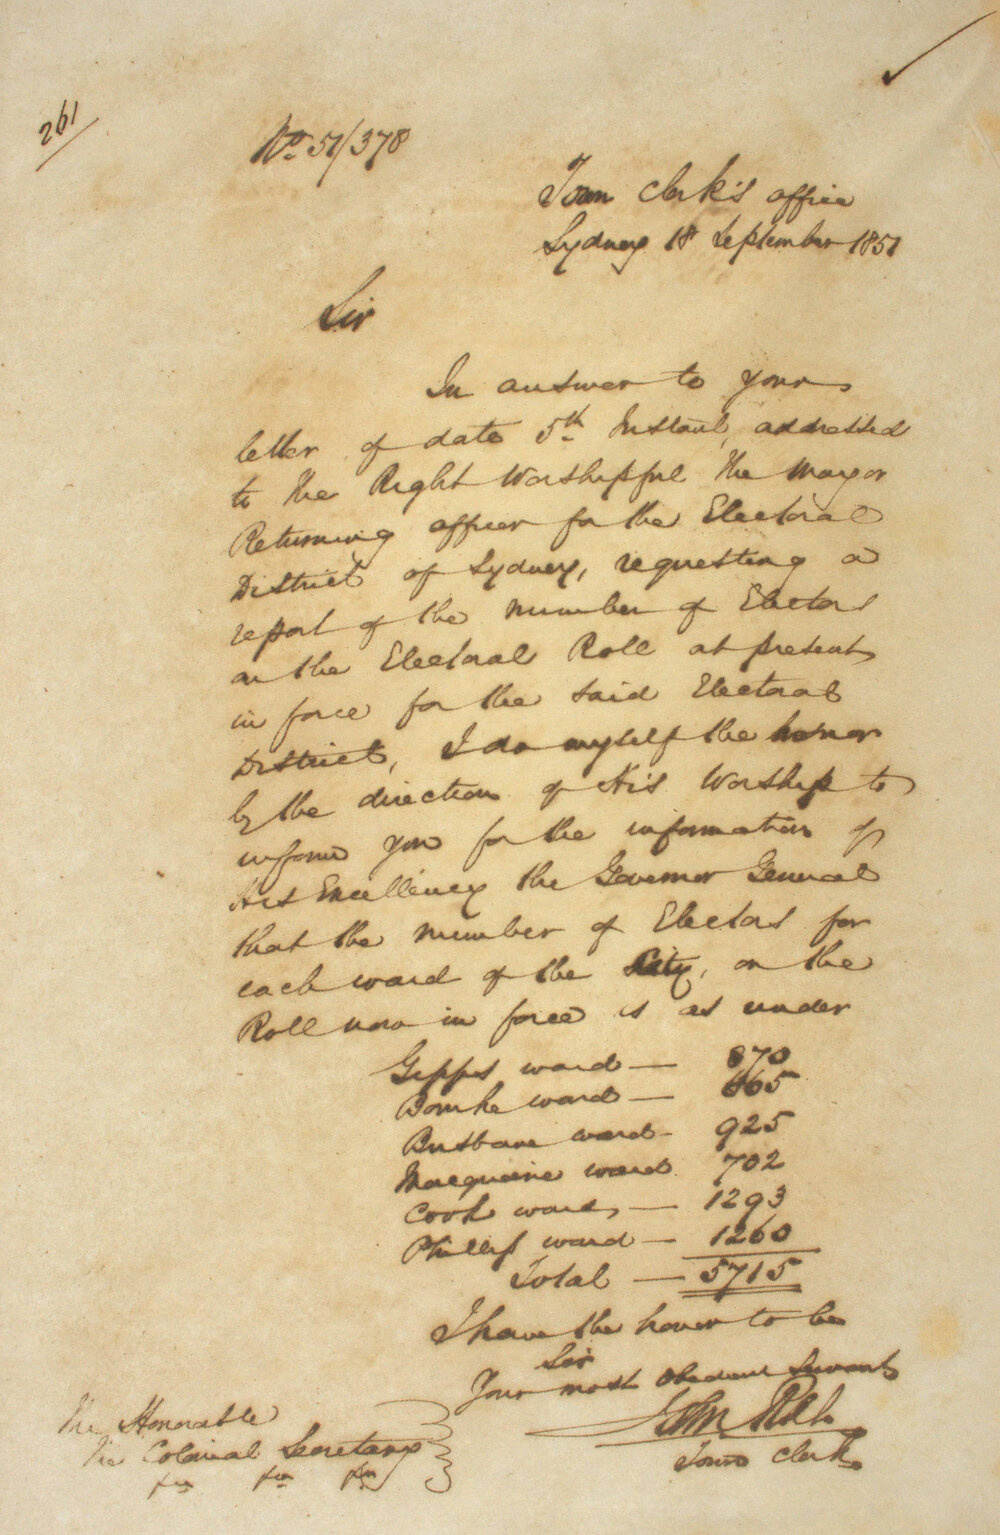 261
No. 51/378
Town Clerk's office
Sydney 18 September 1851
Sir
In answer to your
letter of date 5th Instant, addressed
to the Right Worshipful the Mayor
Returning officer for the Electoral
District of Sydney, requesting a
report of the number of Electors
on the Electoral Roll at present
in force for the said Electoral
District, I do myself the honor
by the direction of His Worship to
inform you for the information of
His Excellency the Governor General
that the number of Electors for
each ward of the City, on the
Roll now in force is as under
Gipps ward — 870
Bourke ward — 665
Brisbane ward - 925
Macquarie ward 702
Cook ward, — 1293
Phillip ward — 1260
Total — 5715
I have the honor to be
Sir
Your most obedient Servant
John
Town Clerk
The Honorable
The Colonial Secretary